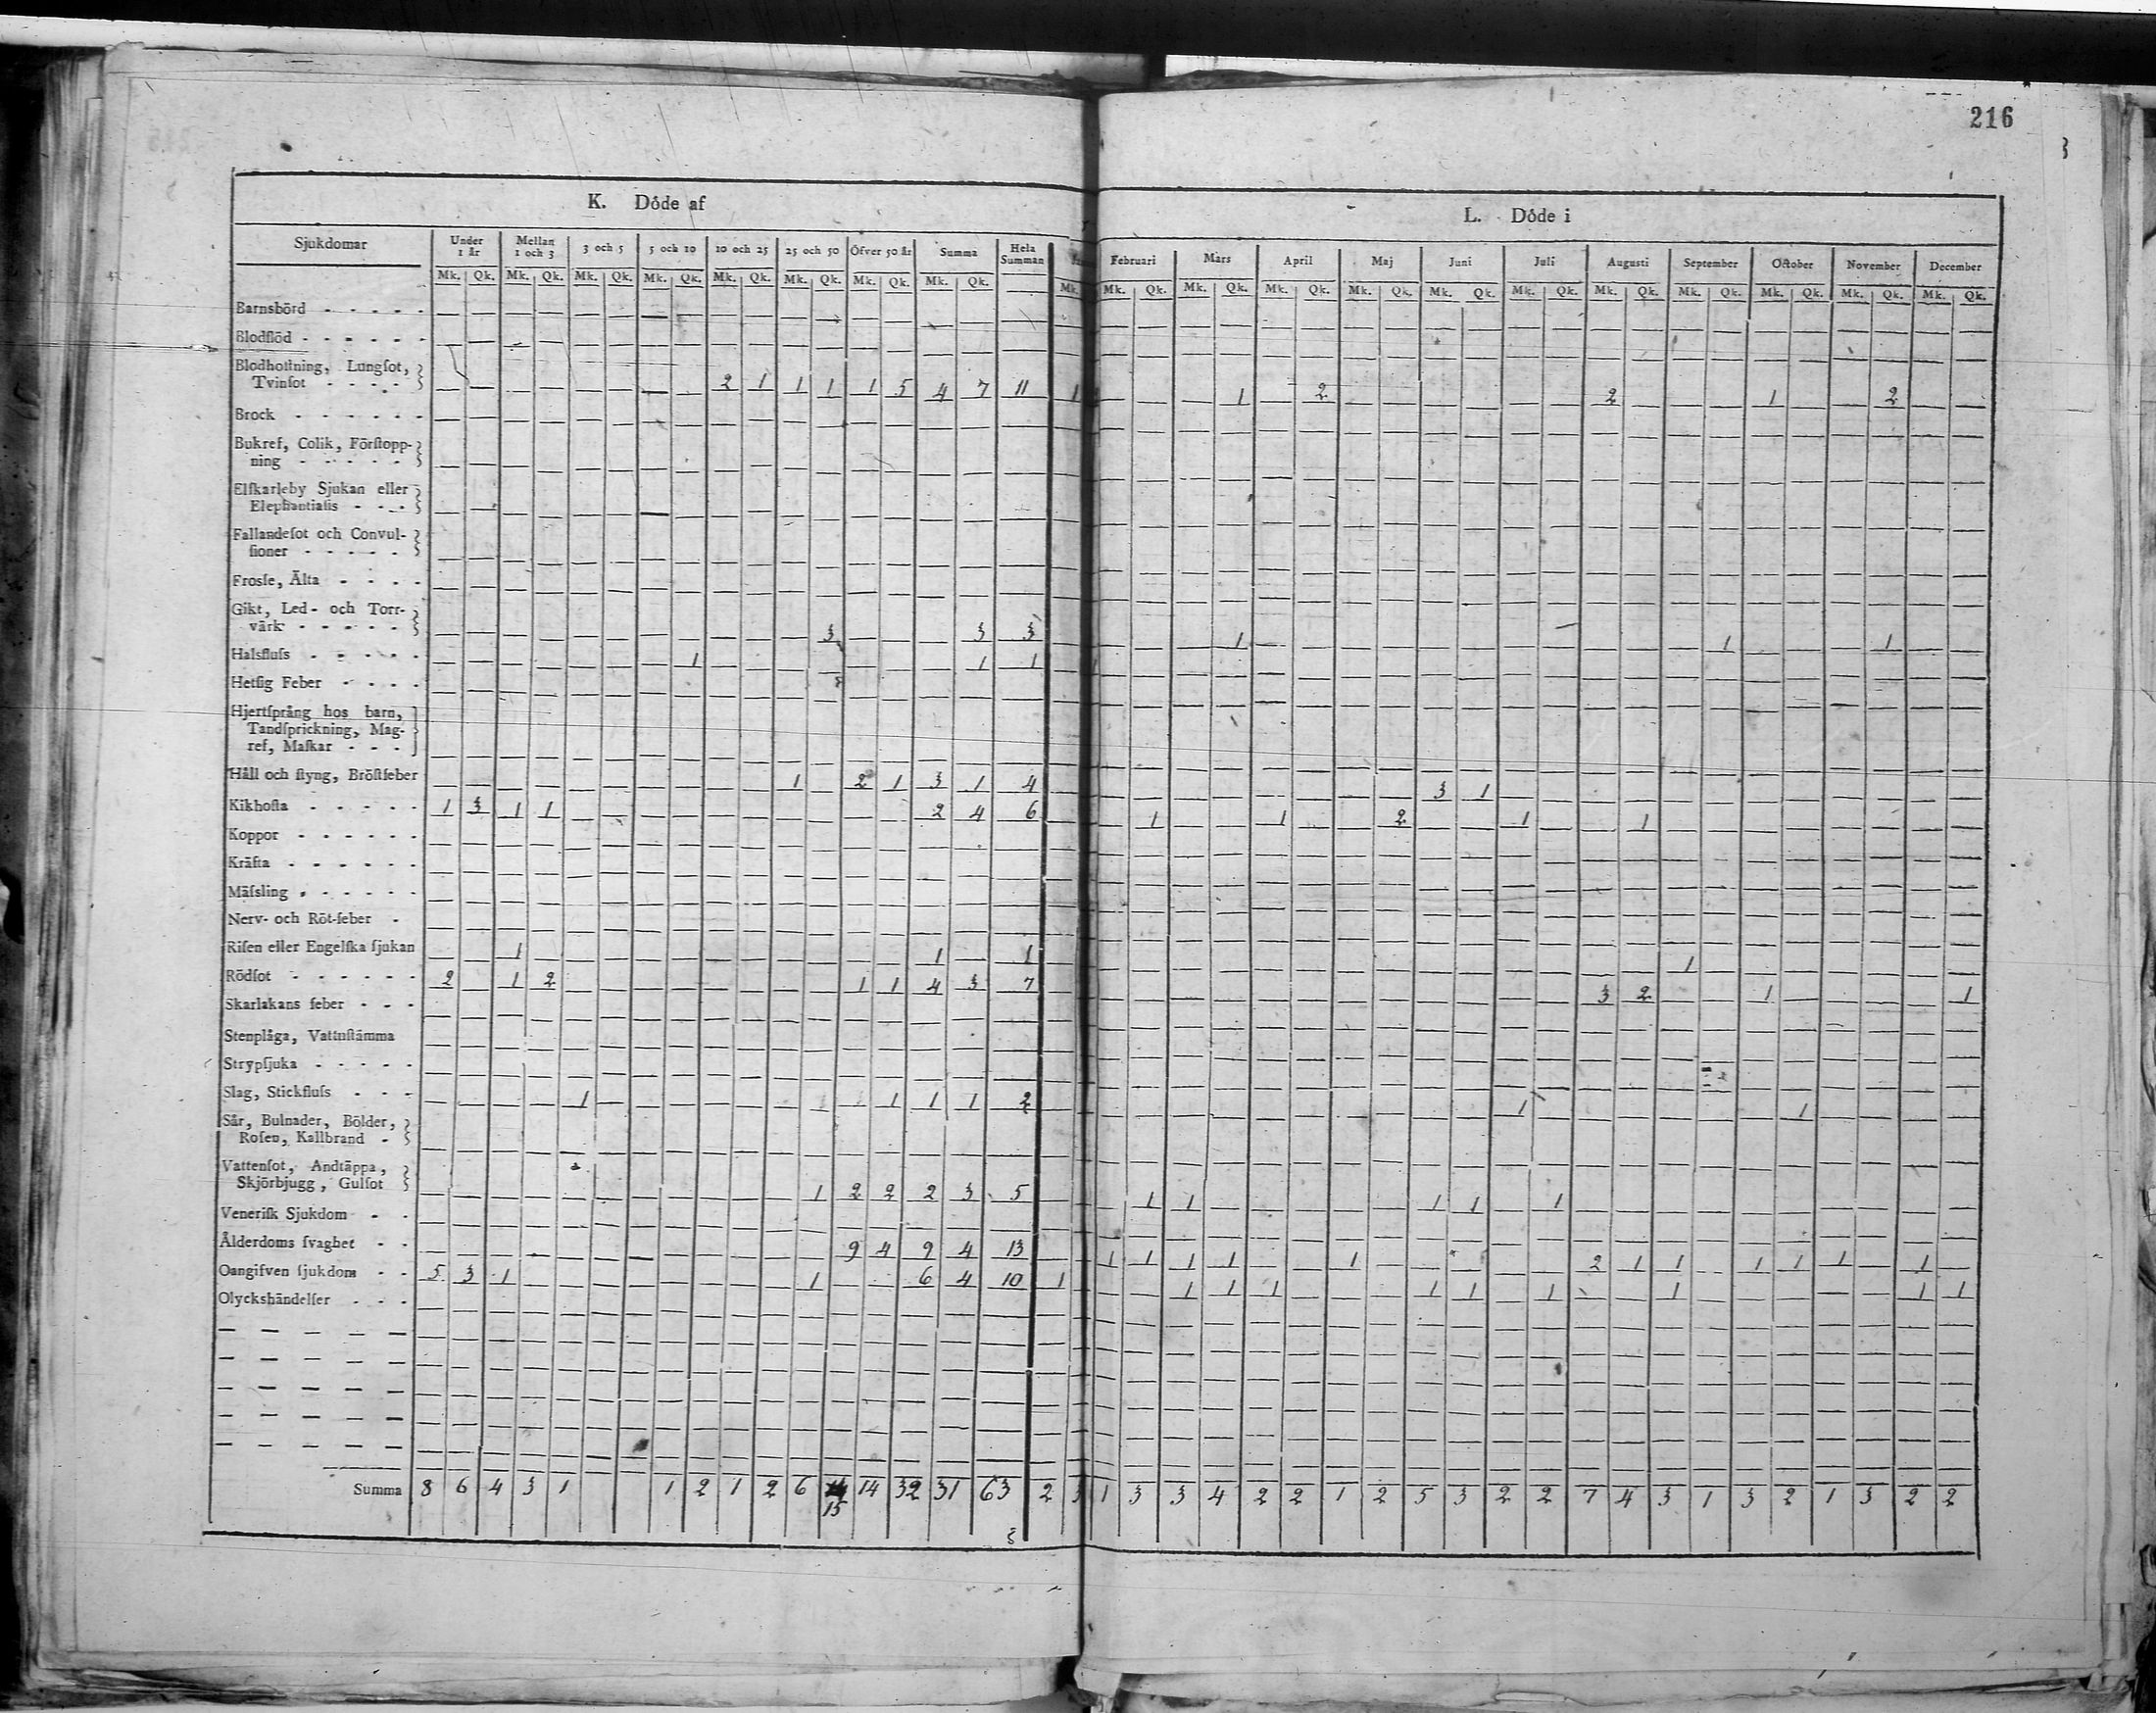 216
K. Döde af
L. Döde i
Sjukdomar Under 1 år Mellan 1 och 3 3 och 5 5 och 10 10 och 25 25 och 50 Öfver 50 år Summa Hela Summan Februari Mars April Maj Juni Juli Augusti September October November December
Mk. Qk. Mk. Qk. Mk. Qk. Mk. Qk. Mk. Qk. Mk. Qk. Mk. Qk. Mk. Qk. Mk. Mk. Qk. Mk. Qk. Mk. Qk. Mk. Qk. Mk. Qk. Mk. Qk. Mk. Qk. Mk. Qk. Mk. Qk. Mk. Qk. Mk. Qk.
Barnsbörd
Blodflöd
Blodhostning, Lungsot,
Tvinsot 2 1 1 1 1 5 4 7 11 1 1 2 2 1 2
Brock
Bukref, Colik, Förstopp-
ning
Elfkarleby Sjukan eller
Elephantiasis
Fallandesot och Convul-
sioner
Frossa, Älta
Gikt, Led- och Torr-
värk 3 3 3 1 1 1
Halsfluss 1 1 1
Hetsig Feber
Hjertsprång hos barn,
Tandsprickning, Mag-
ref, Maskar
Håll och styng, Bröstfeber 1 2 1 3 1 4 3 1
Kikhosta 1 3 1 1 2 4 6 1 1 2 1 1
Koppor
Kräfta
Mässling
Nerv- och Röt-feber
Risen eller Engelska sjukan 1 1 1 1
Rödsot 2 1 2 1 1 4 3 7 3 2 1 1
Skarlakans feber
Stenplåga, Vattnstämma
Strypsjuka
Slag, Stickfluss 1 1 1 1 2 1 1
Sår, Bulnader, Bölder,
Rosen, Kallbrand
Vattensot, Andtäppa,
Skjörbjugg, Gulsot 1 2 2 2 3 5 1 1 1 1 1
Venerisk Sjukdom
Ålderdoms svaghet 9 4 9 4 13 1 1 1 1 1 2 1 1 1 1 1 1
Oangifven sjukdom 5 3 1 1 6 4 10 1 1 1 1 1 1 1 1 1 1
Olyckshändelser
Summa 8 6 4 3 1 1 2 1 2 6 14 32 31 63 2 3 1 3 3 4 2 2 1 2 5 3 2 2 7 4 3 1 3 2 1 3 2 2
15